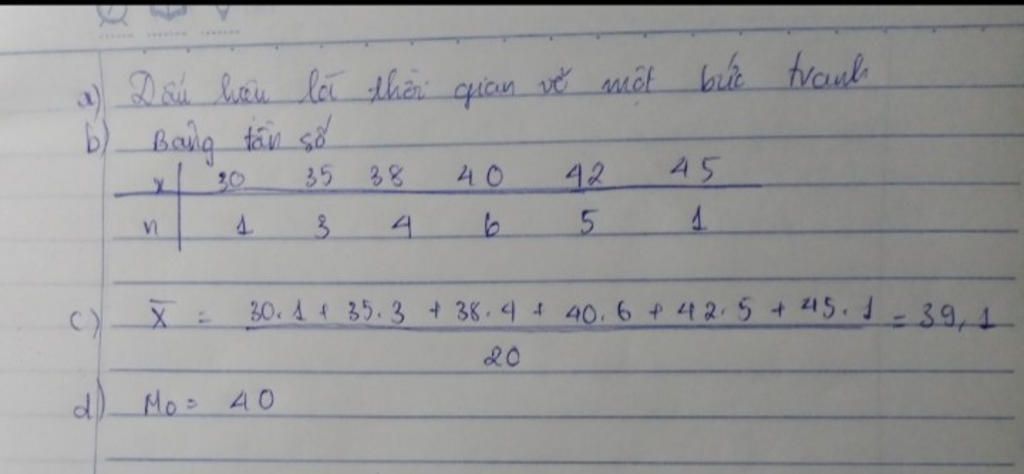 a) Dấu hiệu là thời gian vẽ một bức tranh
b) Bảng tần số
x | 30 35 38 40 42 45
n | 1 3 4 6 5 1
c) X̄ = 30.1 + 35.3 + 38.4 + 40.6 + 42.5 + 45.1 = 39,1
20
d) M₀ = 40